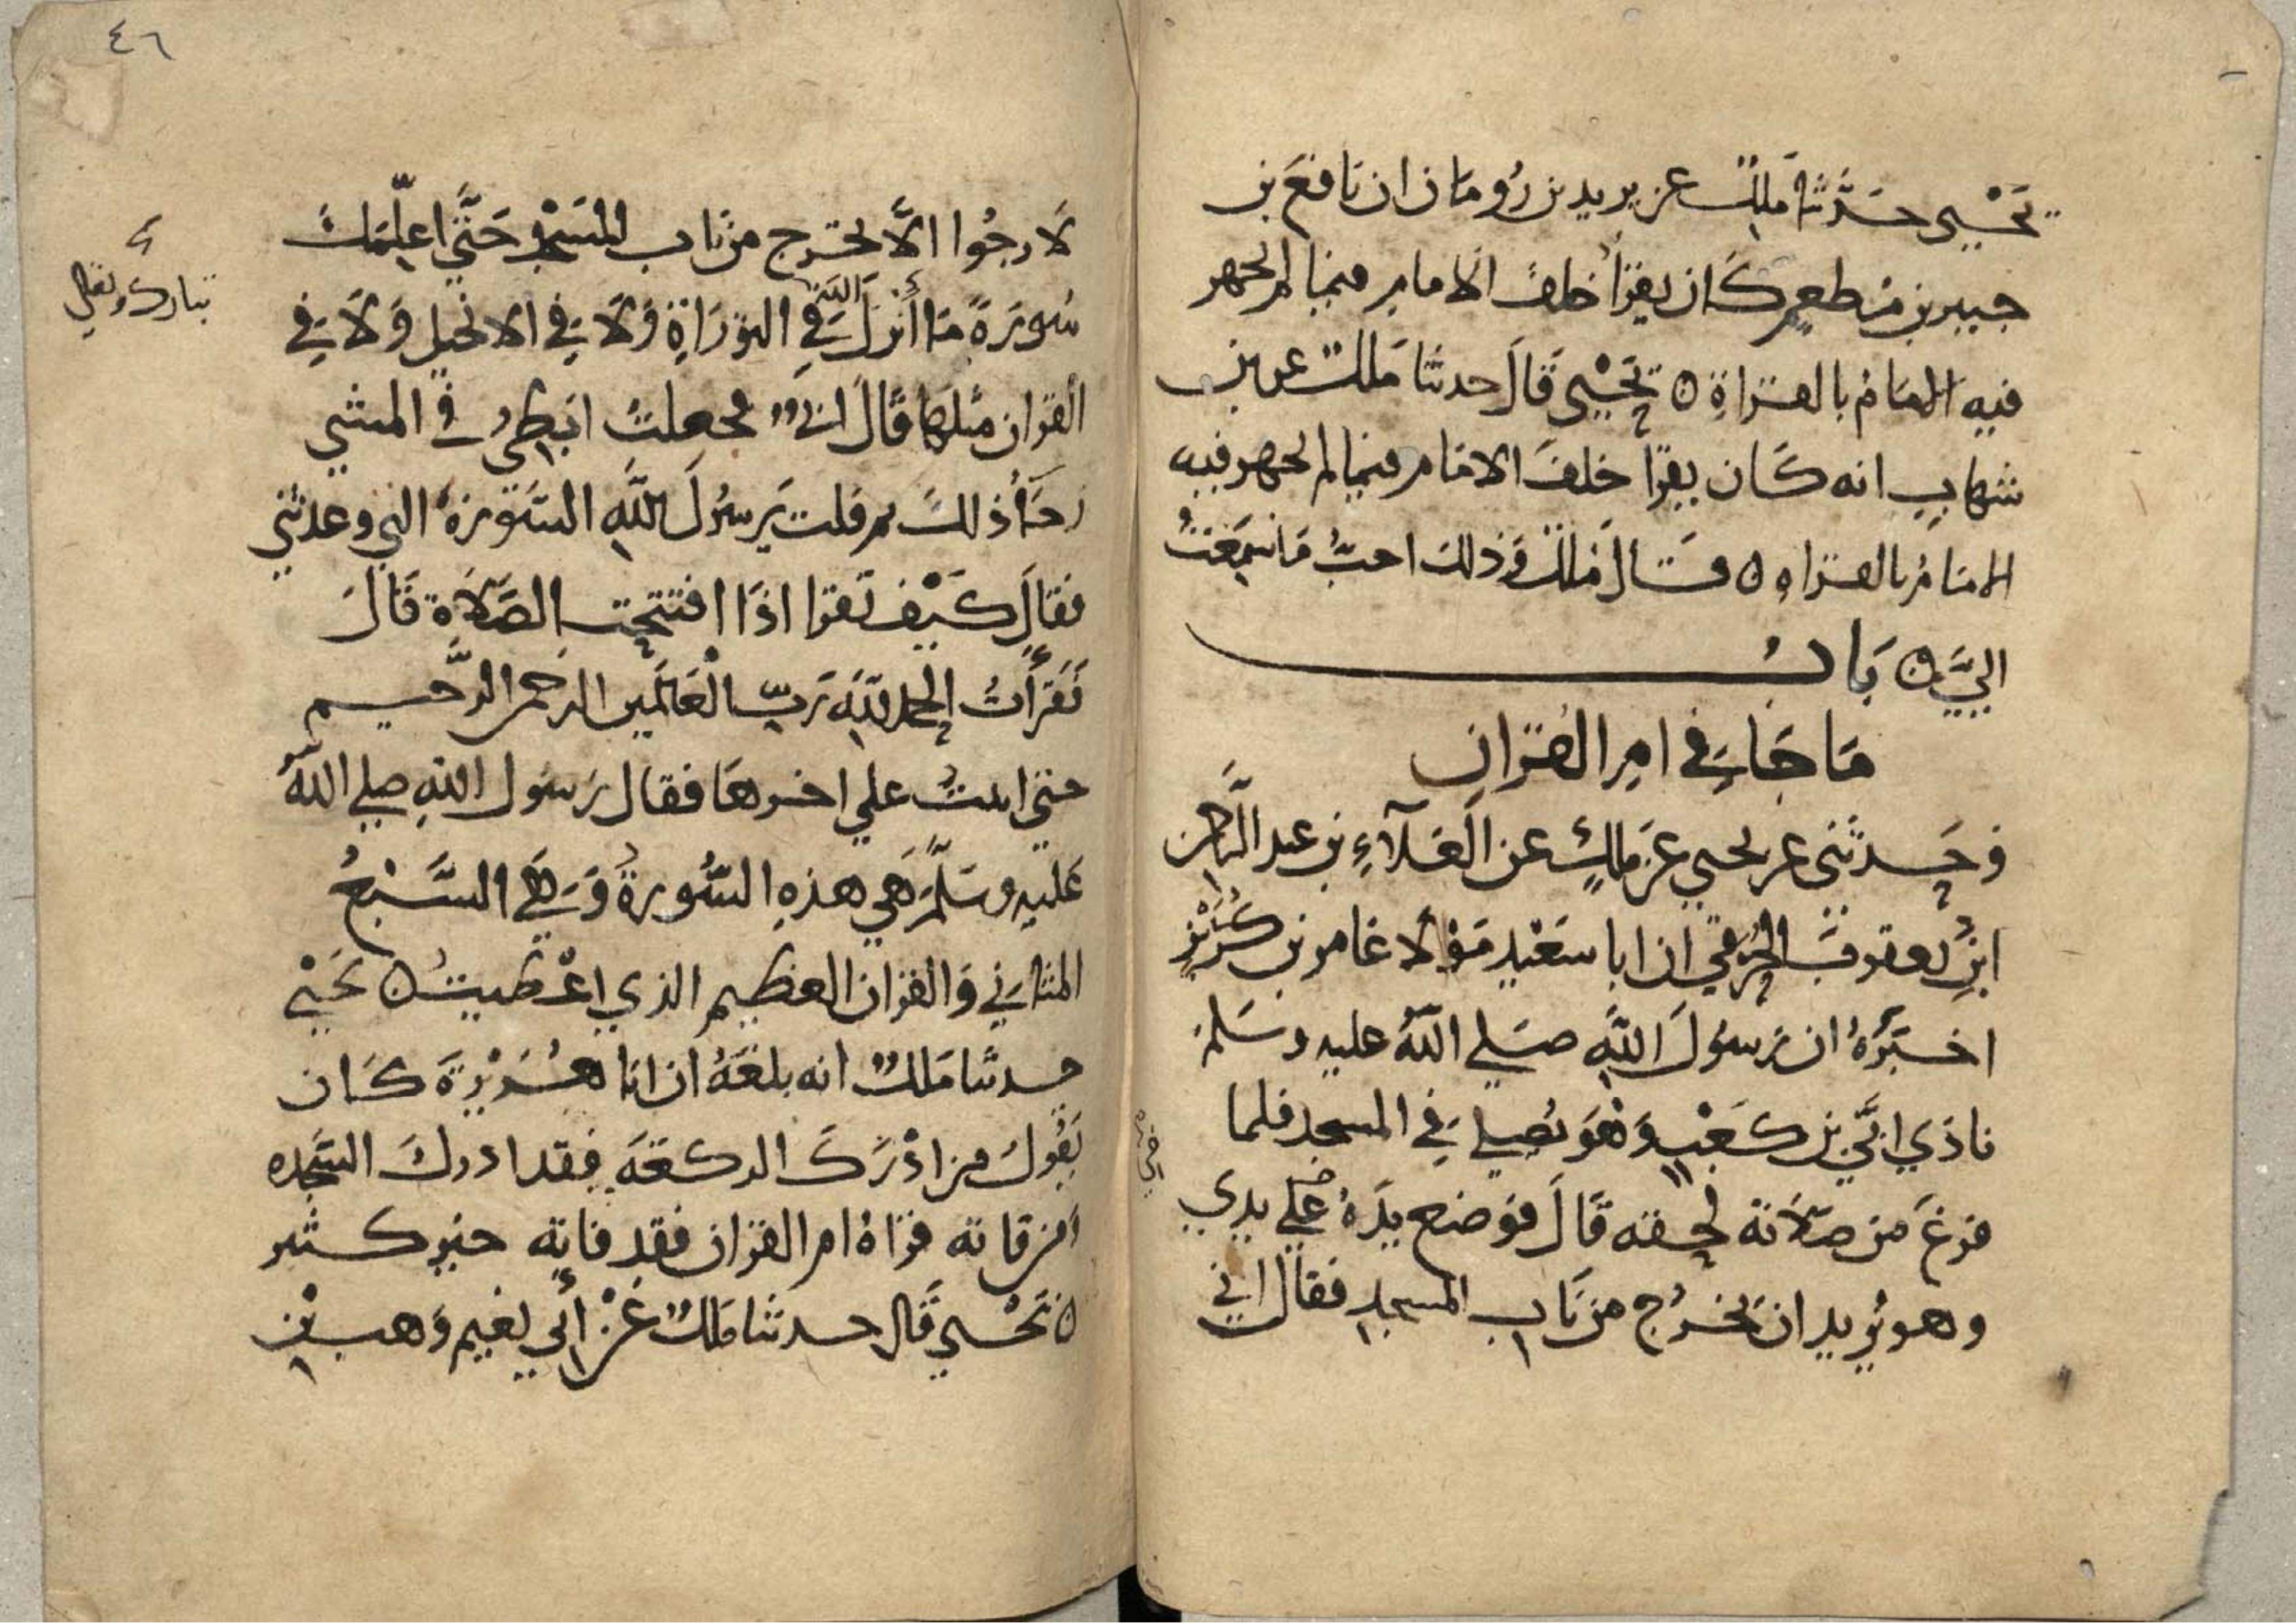 يَحْيى حَدَّثنا مَلِكٌ عن يزيد بن رُومَان ان نافعَ بن
جبير بن مُطعِمٍ كَان يقرأ خلفَ الامامِ فيما لم يجهر
فيه الامَامُ بالقراةِ ه يَحْيى قَالَ حدثنا مَلك عن بن
شهابٍ انه كَان يقرا خلفَ الامَامِ فيما لم يجهر فيه
الامَامُ بالقراه ه قَالَ مَلك وَذلك احبُّ مَا سَمِعْتُ
اليَّ ه بَابُ
مَا جَا في امِ القرانِ
وَحَدثني عن يحيى عَن مالكٍ عن العَلآءِ بن عبد الرَّحمن
ابنِ يعقوبَ الحُرَقي ان ابا سَعْيدٍ مَوْلا عَامر بن كُرَيْزٍ
اخبَرَهُ ان رَسُولَ اللَّهِ صَلي اللَّهُ عليه وسَلم
نادَي ابَيَّ بن كَعْبٍ وَهْوَ يُصلي فِي المسجد فلما
فرغَ من صَلَاته لحقه قَالَ فوَضع يَدَهُ عَلي يدي
وهو يُريد ان يَخرُج من بَاب المسجدِ فقال اني
٤٦
لَارجُوا الَّا تخرج من بَاب المَسْجِدِ حَتَّي اعلِّمَكَ
سُورَةً مَا أَنزلَ اللَّهُ فِي التورَاةِ وَلَا فِي الانجيل وَلَا فِي
القران مثلها قَالَ ابي فجعلتُ ابطئ في المشي
رجَآءَ ذلكَ ثم قلت يَرسُولَ اللَّهِ السَورَةُ التي وعدتني
فقالَ كَيْف تَقرا اذَا افتتحت الصَّلَاة قَالَ
فَقَرَأتُ الحمد للَّهِ رَبِّ العَالَمين الرحمن الرَّحيم
حتي اتيتُ علي اخرهَا فقال رَسُول اللَّهِ صلي اللَّهُ
عَليه وسَلَّمَ هَي هذهِ السُّورةُ وَهِي السَّبْعُ
المثاني وَالقران العظيم الذي اعْطيتُ ه يَحْيى
حدثنا مَلكٌ انه بلغَهُ ان ابا هُرَيْرَةَ كَان
يَقُولُ من ادْرَكَ الركعَة فقد ادركَ السَّجده
ومن فاته قراةُ ام القران فقد فاته خير كثير
ه يَحْيى قَال حدثنا مَلكٌ عَنْ أَبي نعيم وَهب بْن
تبارك وتعالي